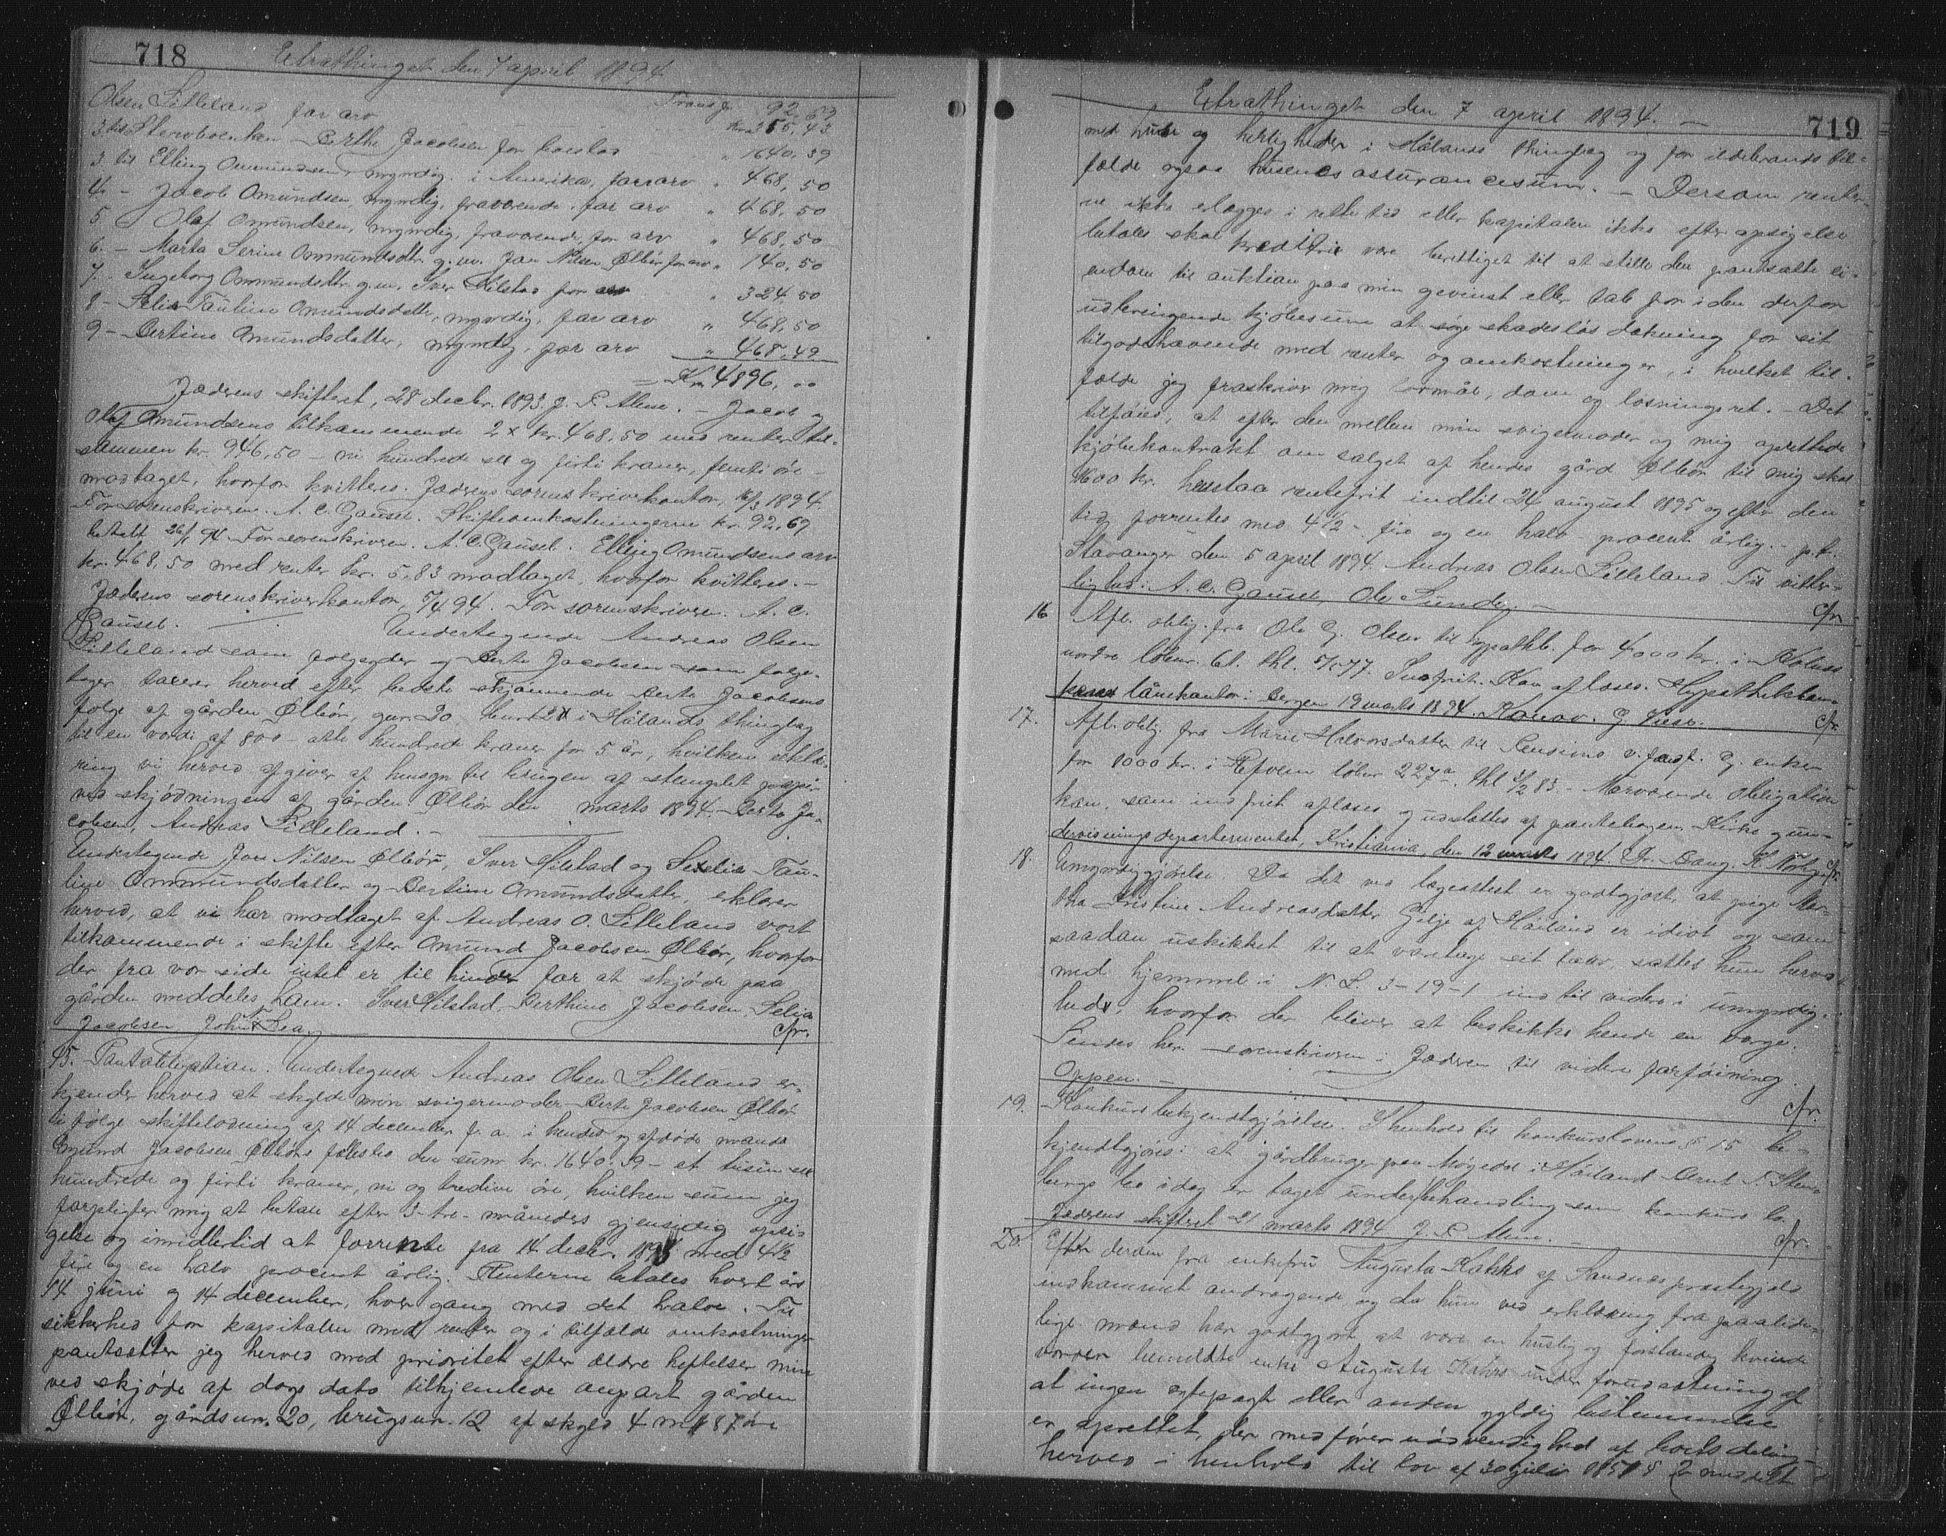 718
Extrathinget den 7 april 1894.
Olsen Lilleland for arv Transp. 92,69
kr. 355,43
3 til Stervboenken Berthe Jacobsen for boeslod " 1640,39
3. til Elling Omundsen, myndig, i Amerika, for arv " 468,50
4. - Jacob Omundsen, myndig, fraværende, for arv " 468,50
5 - Olaf Omundsen, myndig, fraværende, for arv " 468,50
6. - Marta Serine Ommundsdtr. g. m. Jon Nilsen Ølbør for arv " 140,50
7. - Ingeborg Ommundsdtr. g. m. Iver Hilstad for arv " 324,50
8 - Selia Tauline Omundsdatter, myndig, for arv " 468,50
9 - Bertine Omundsdatter, myndig, for arv " 468,49
= Kr. 4896,00
Jæderens skifteret, 28 decbr. 1893. J. P. Alme. - Jacob og
Olaf Omundsens tilkommende 2 x kr. 468,50 med renter til-
sammen kr. 946,50 - ni hundrede sex og firti kroner, femti øre -
modtaget, hvorfor kvitteres. Jæderens sorenskriverkontor, 16/3 1894.
For sorenskriveren. A. C. Gausel. Skifteomkostningerne kr. 92,69
betalt 26/1 94. For sorenskriveren. A. C. Gausel. Elling Omundsens arv
kr. 468,50 med renter kr. 5,83 modtaget, hvorfor kvitteres. -
Jæderens sorenskriverkontor, 5/4 94. For sorenskriveren. A. C.
Gausel. Undertegnede Andreas Olsen
Lilleland som folgeyder og Berte Jacobsen som folge-
tager taxerer herved efter bedste skjønnende Berte Jacobsens
folge af gården Ølbør, gnr. 20 bnr. 12 i Hålands thinglag
til en værdi af 800 - otte hundrede kroner for 5 år, hvilken erklæ-
ring vi herved afgiver af hensyn til brugen af stemplet papir
ved skjødningen af gården Ølbør den marts 1894. Berte Ja-
cobsen, Andreas Lilleland. -
Undertegnede Jon Nilsen Ølbør, Iver Hilstad og Selia Tau-
line Ommundsdatter og Bertine Omundsdatter, erklærer
herved, at vi har modtaget af Andreas O. Lilleland vort
tilkommende i skifte efter Omund Jacobsen Ølbør, hvorfor
der fra vor side intet er til hinder for at skjøde paa
gården meddeles ham. Iver Hilstad, Berthine Jacobsen, Selia
Jacobsen John N Lea. cfr.
15. Pantobligation. Undertegnede Andreas Olsen Lilleland er-
kjender herved at skylde min svigermoder Berte Jacobsen Ølbør
ifølge skifteslutning af 14 december f. a. i hendes og afdøde mands
Omund Jacobsen Ølbørs fællesbo den sum kr. 1640.39 - et tusin sex
hundrede og firti kroner, ni og tredive øre, hvilken sum jeg
forpligter mig at betale efter 3 - tre - måneders gjensidig opsi-
gelse og imidlertid at forrente fra 14 decbr. 1893 med 4½
fire og en halv procent årlig. Renterne betales hvert års
14 juni og 14 december, hver gang med det halve. Til
sikkerhed for kapitalen med renter og i tilfælde omkostninger
pantsætter jeg herved med prioritet efter ældre heftelser min
ved skjøde af dags dato tilhjemlede anpart gården
Ølbør, gårdsnr. 20, brugsnr. 12 af skyld 4 mrk 87 øre
719
Extrathinget den 7 april 1894. -
med huse og herligheder i Hålands thinglag og for ildebrands til-
fælde ogsaa husenes assurancesum. - Dersom renter-
ne ikke erlægges i rette tid eller kapitalen ikke efter opsigelse
betales skal kreditrix være berettiget til at stille den pantsatte ei-
endom til auktion paa min gevinst eller tab for i den derfor
udbringende kjøbesum at søge skadesløs dækning for sit
tilgodehavende med renter og omkostninger, i hvilket til-
fælde jeg fraskriver mig lovmål, dom og løsningsret. - Det
tilføies, at efter den mellem min svigermoder og mig oprettede
kjøbekontrakt om salget af hendes gård Ølbør til mig skal
1600 kr. henstaa rentefrit indtil 24 august 1895 og efter den
tid forrentes med 4½ - fire og en halv - procent årlig. - p. t.
Stavanger den 5 april 1894. Andreas Olsen Lilleland. Til vitter-
lighed: A. C. Gausel, Ole Sunde. - cfr.
16. Afl. oblig. fra Ole G. Olsen til hypothb. for 4000 kr. i
nordre løbnr. 61. thl. 5/5 77. Indfriet. Kan aflæses. Hypothekban-
kens lånekontor i Bergen 19 marts 1894. cfr.
17. Afl. oblig. fra Marie Halvorsdatter til
for 1000 kr. i løbnr. 227a. thl. 3/2 83. - Nærværende obligation
kan, som indfriet aflæses og udslettes af pantebogen. Kirke og un-
dervisningsdepartementet, Kristiania, den 12 marts 1894. cfr.
18. Umyndiggjørelse. Da det ved lægeattest er godtgjort at pige Mar-
tha Kristine Andreasdatter Gilje af Håland er idiot og som
saadan uskikket til at varetage sit tarv, sættes hun herved
med hjemmel i N. L. 3-19-1 indtil videre i umyndig-
hed, hvorfor der bliver at beskikke hende en værge.
Sendes hr. sorenskriveren i Jæderen til videre forføining.
Oppen. - cfr.
19. Konkursbekjendtgjørelse. I henhold til konkurslovens § 15 be-
kjendtgjøres: at gårdbruger paa Møgedal i Håland Bernt T. Sten-
bergs bo idag er taget under behandling som konkursbo.
Jæderens skifteret 21 marts 1894 J. P. Alme. - cfr.
20. Efter derom fra enkefru Augusta Kahrs af Sandnes præstegjeld
indkommet andragende og da hun ved erklæring fra paalide-
lige mænd har godtgjort at være en huslig og forstandig kvinde
vorder bemeldte enke Augusta Kahrs under forudsætning af
at ingen egtepagt eller anden gyldig bestemmelse
er oprettet, der medfører nødvendighed af boets deling
herved i henhold til lov af 30 juli 1851 § 2 meddelt